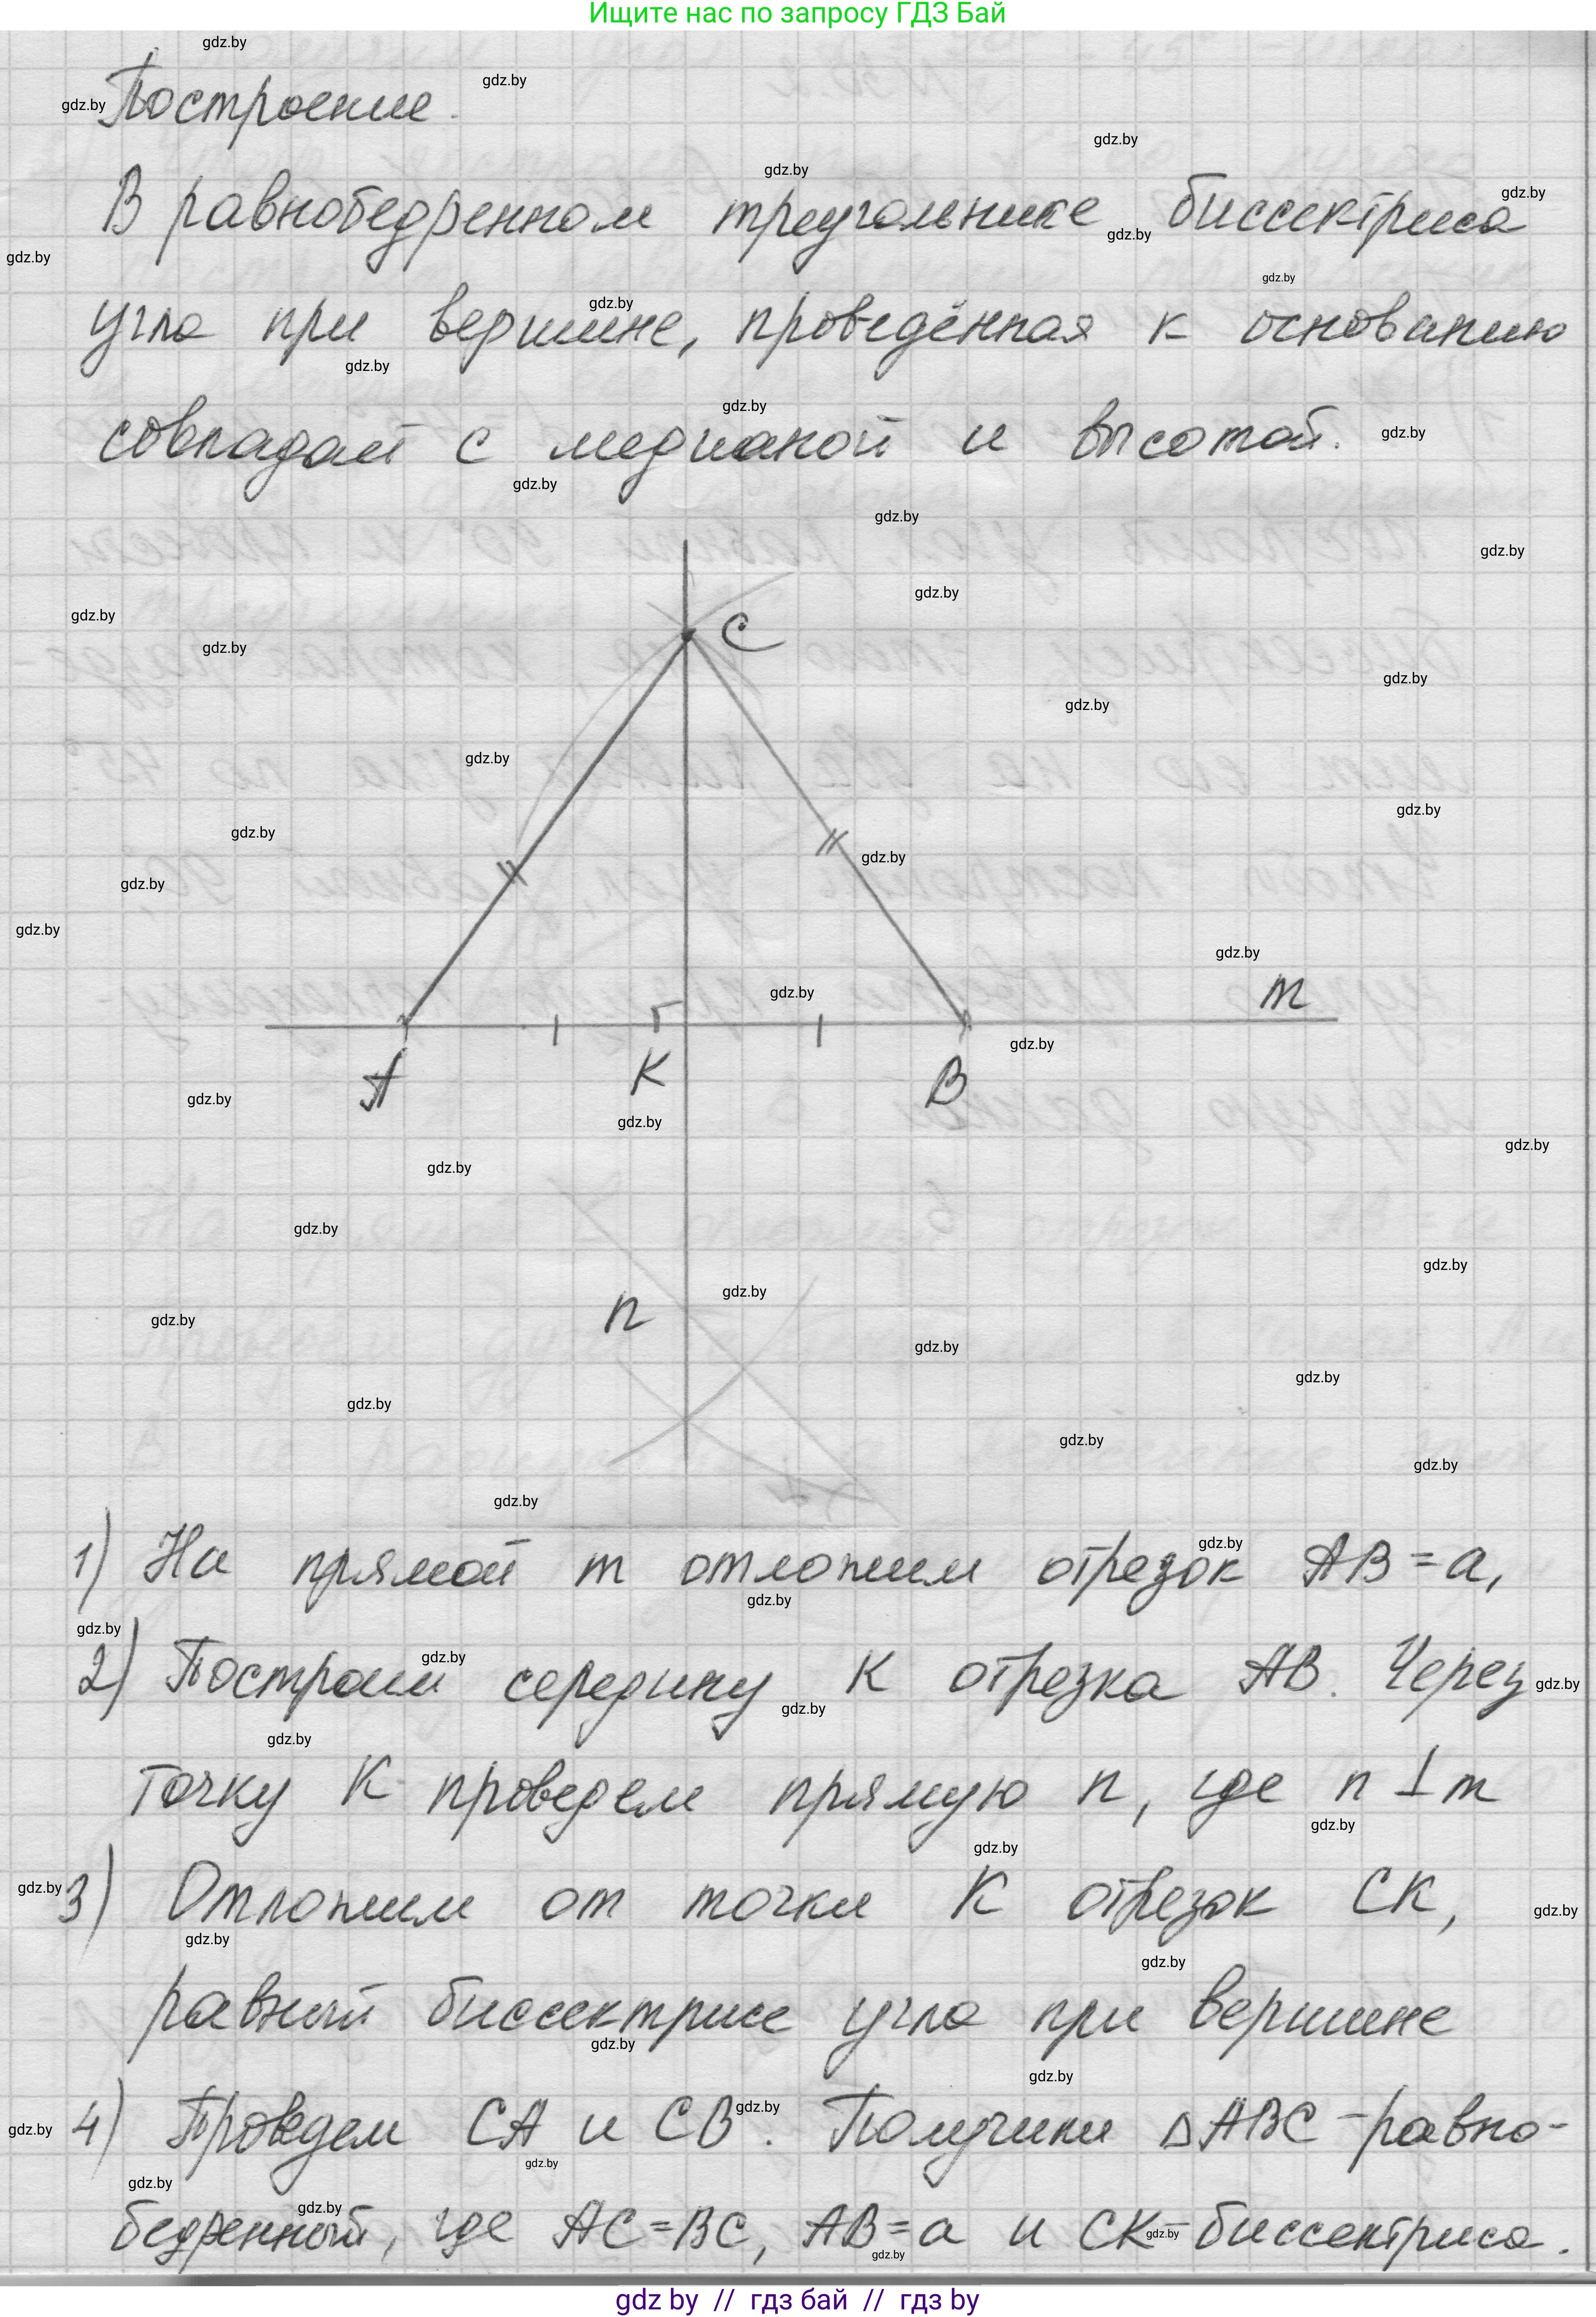 Ищите нас по запросу ГДЗ Бай
Построение.
В равнобедренном треугольнике биссектриса
угла при вершине, проведённая к основанию
совпадает с медианой и высотой.
C
m
A
K
B
n
1) На прямой m отложим отрезок AB = a,
2) Построим середину K отрезка AB. Через
точку K проведем прямую n, где n ⊥ m
3) Отложим от точки K отрезок CK,
равный биссектрисе угла при вершине
4) Проведем CA и CB. Получим △ABC - равно-
бедренный, где AC = BC, AB = a и CK - биссектриса.
gdz by // гдз бай // гдз by